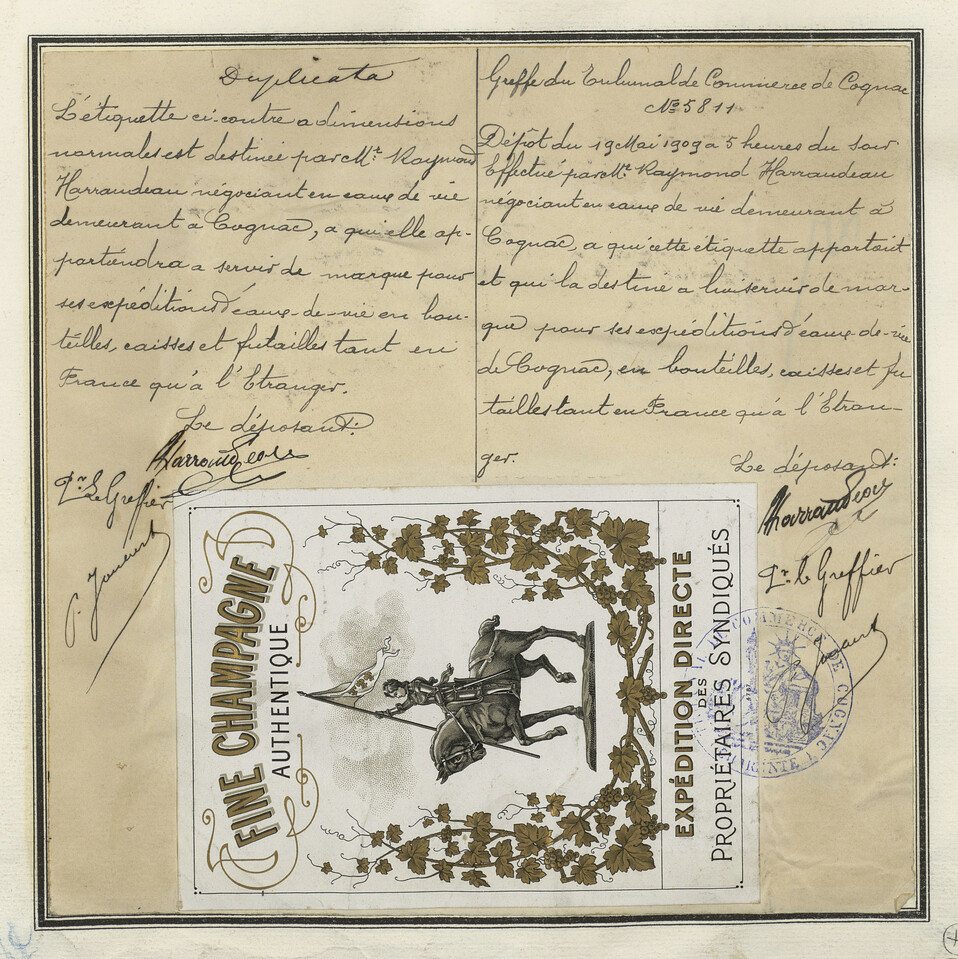 Duplicata
L'étiquette ci-contre a dimensions
normales est destinée par Mr. Raymond
Harraudeau négociant en eaux de vie
demeurant à Cognac, a qui elle ap-
partiendra a servir de marque pour
ses expéditions d'eaux-de-vie en bou-
teilles, caisses et futailles tant en
France qu'à l'Etranger.
Le déposant:
Harraudeau
Pr. le Greffier
Greffe du Tribunal de Commerce de Cognac
No. 5811
Dépôt du 19 Mai 1909 a 5 heures du soir
Effectué par Mr. Raymond Harraudeau
négociant en eaux de vie demeurant à
Cognac, a qui cette étiquette appartient
et qui la destine a lui servir de mar-
que pour ses expéditions d'eaux-de-vie
de Cognac, en bouteilles, caisses et fu
tailles tant en France qu'à l'Etran-
ger.
Le déposant:
Harraudeau
Pr. le Greffier
FINE CHAMPAGNE
AUTHENTIQUE.
EXPÉDITION DIRECTE
DES
PROPRIÉTAIRES SYNDIQUÉS
COMMERCE DE COGNAC
CHARENTE